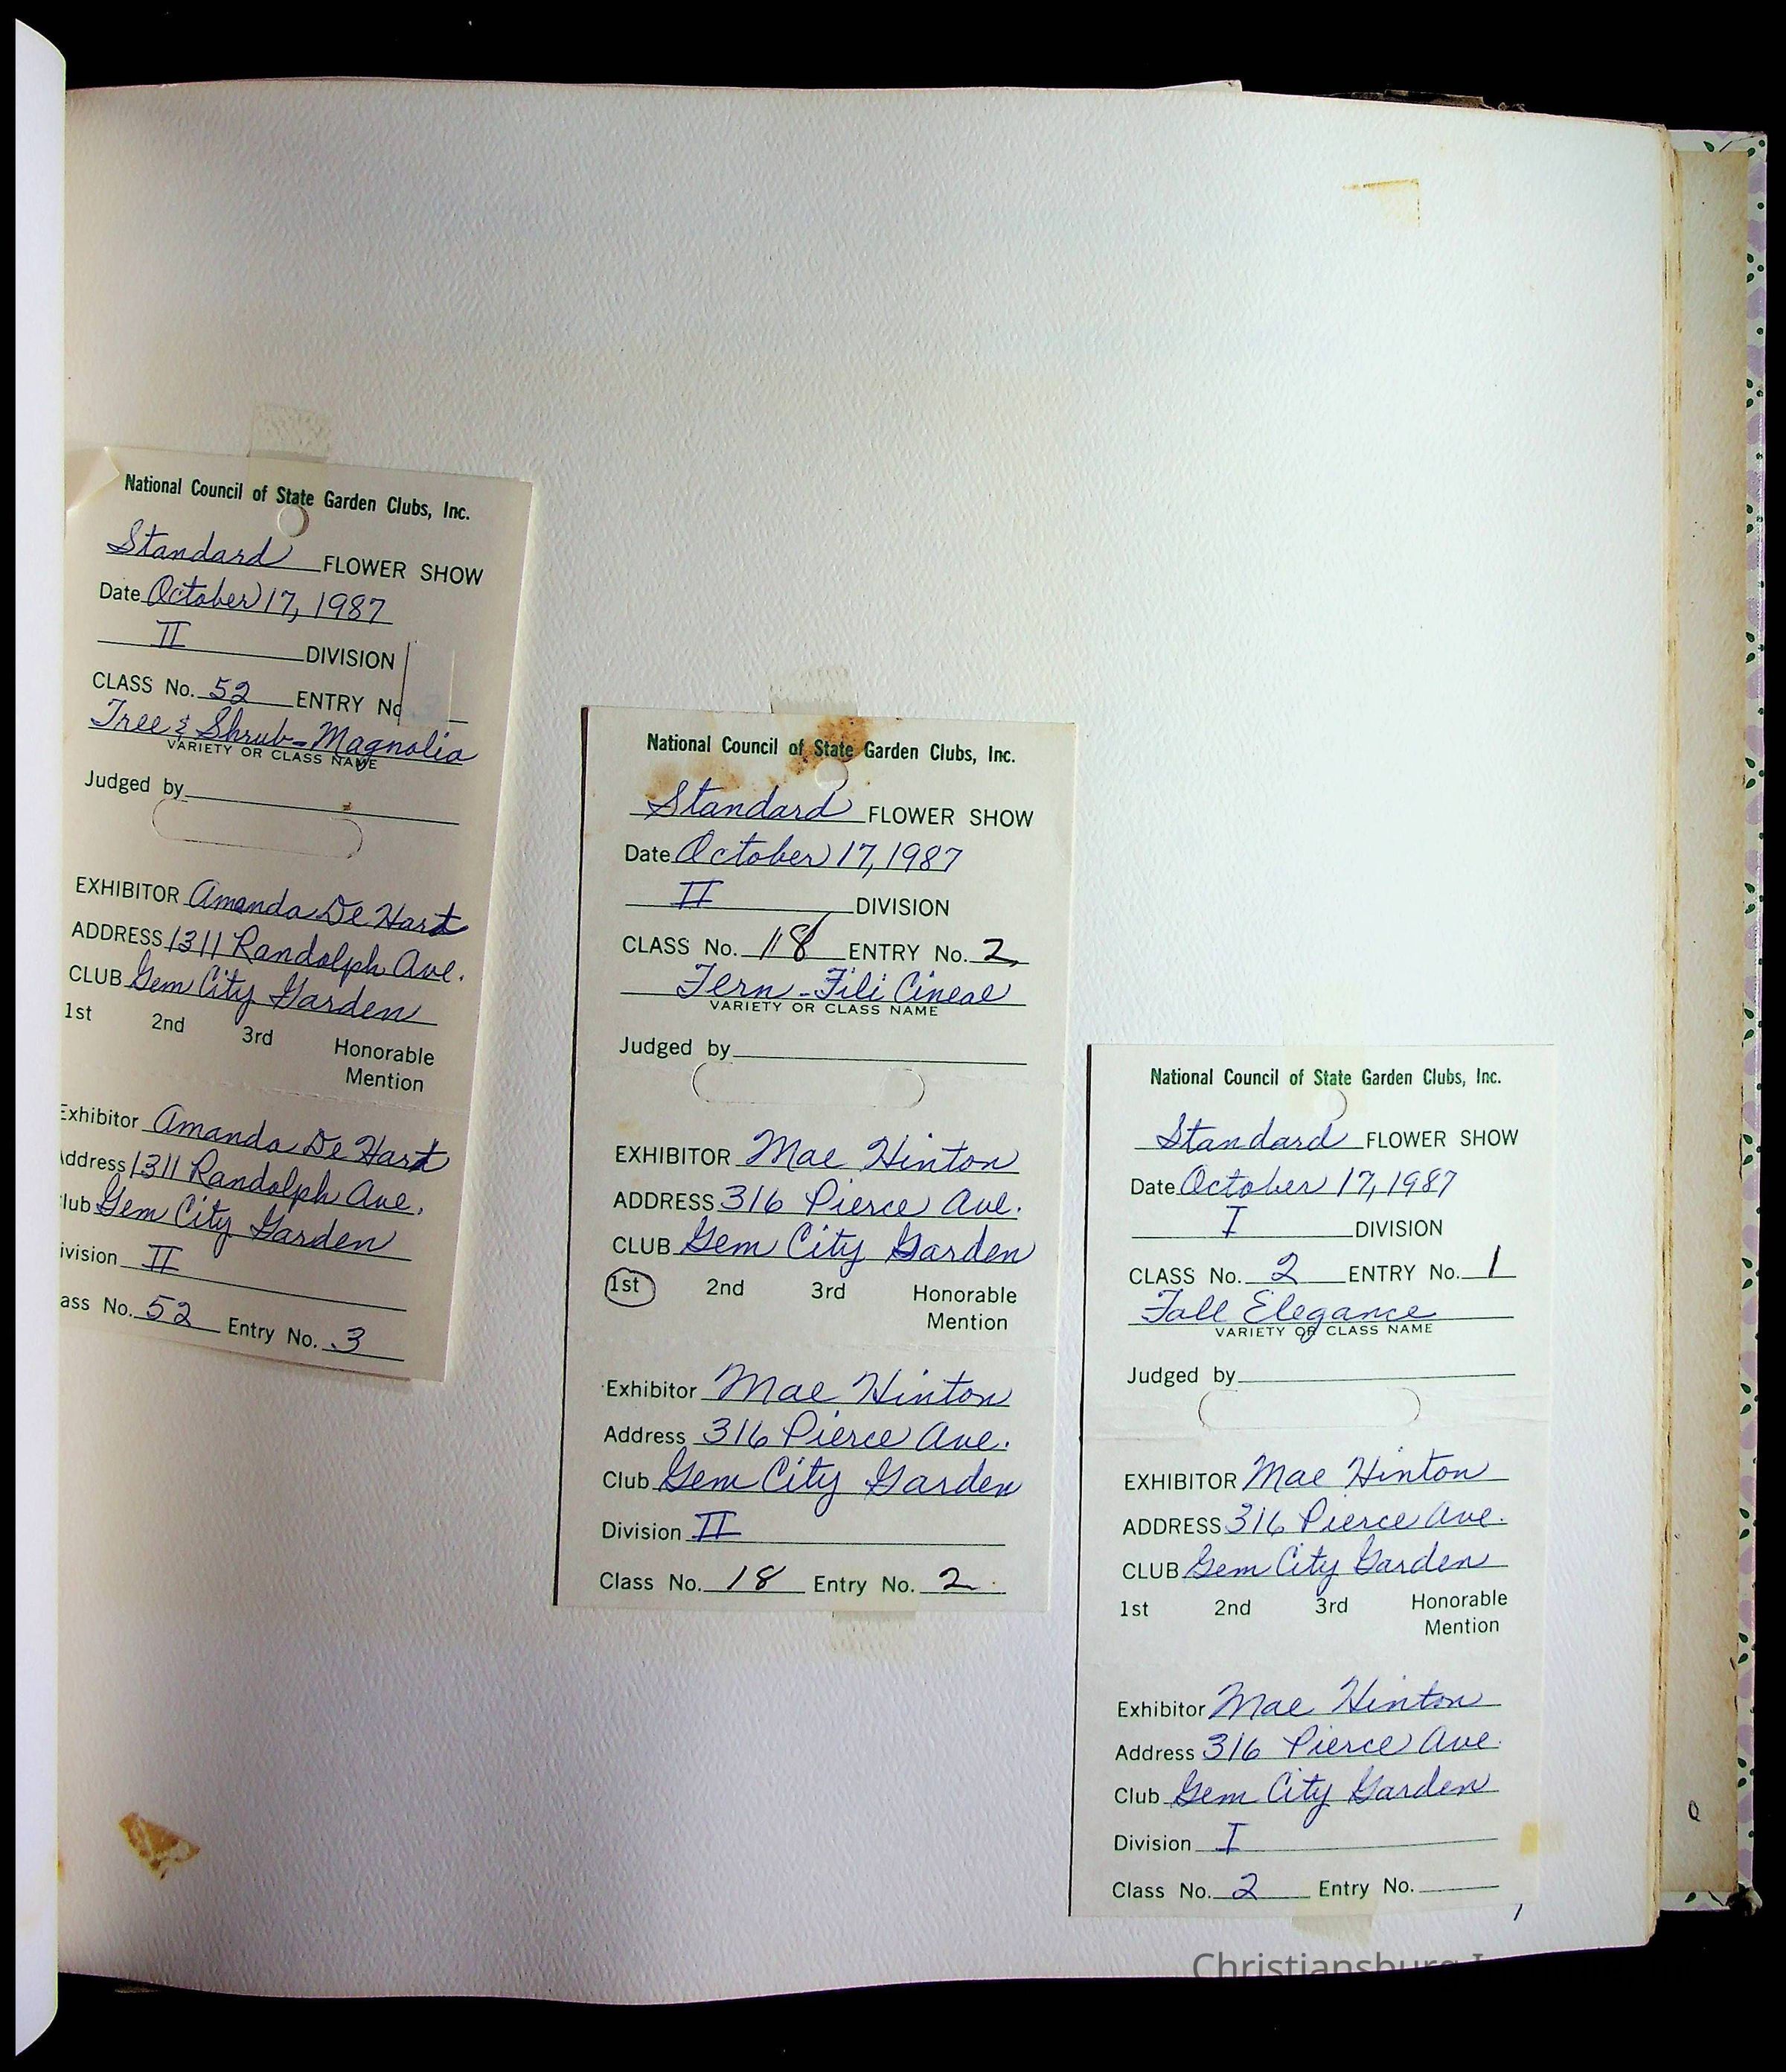 National Council of State Garden Clubs, Inc.
Standard FLOWER SHOW
Date October 17, 1987
II DIVISION
CLASS No. 52 ENTRY No 3
Tree & Shrub - Magnolia
VARIETY OR CLASS NAME
Judged by
EXHIBITOR Amanda De Hart
ADDRESS 1311 Randolph Ave.
CLUB Gem City Garden
1st 2nd 3rd Honorable
Mention
Exhibitor Amanda De Hart
Address 1311 Randolph Ave.
lub Gem City Garden
ivision II
ass No. 52 Entry No. 3
National Council of State Garden Clubs, Inc.
Standard FLOWER SHOW
Date October 17, 1987
II DIVISION
CLASS No. 18 ENTRY No. 2
Fern - Fili Cineal
VARIETY OR CLASS NAME
Judged by
EXHIBITOR Mae Hinton
ADDRESS 316 Pierce Ave.
CLUB Gem City Garden
1st 2nd 3rd Honorable
Mention
Exhibitor Mae Hinton
Address 316 Pierce Ave.
Club Gem City Garden
Division II
Class No. 18 Entry No. 2
National Council of State Garden Clubs, Inc.
Standard FLOWER SHOW
Date October 17, 1987
I DIVISION
CLASS No. 2 ENTRY No. 1
Fall Elegance
VARIETY OR CLASS NAME
Judged by
EXHIBITOR Mae Hinton
ADDRESS 316 Pierce Ave.
CLUB Gem City Garden
1st 2nd 3rd Honorable
Mention
Exhibitor Mae Hinton
Address 316 Pierce Ave.
Club Gem City Garden
Division I
Class No. 2 Entry No.
1
Christiansburg